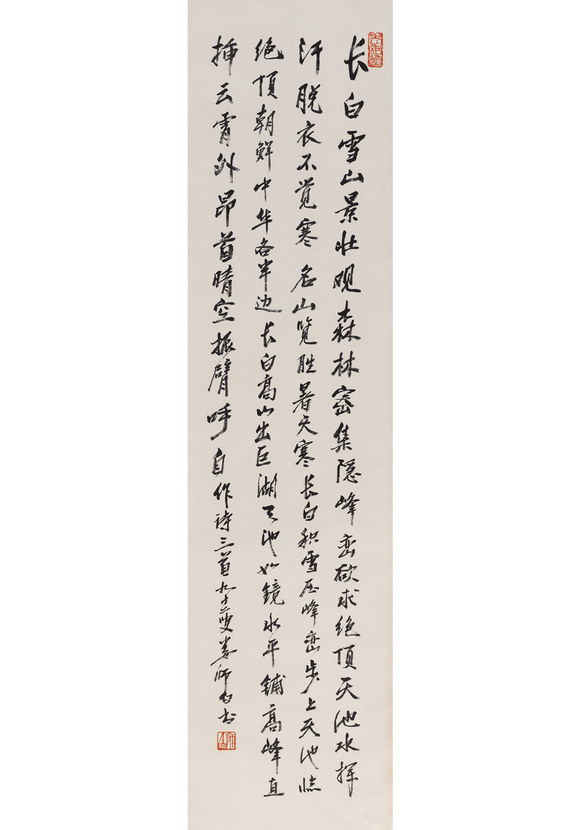 长白雪山景壮观森林密集隐峰峦欲求绝顶天池水挥
汗脱衣不觉寒名山览胜暑天寒长白积雪压峰峦步上天池临
绝顶朝鲜中华各半边长白高山出巨湖天池如镜水平铺高峰直
插云霄外昂首晴空振臂呼自作诗三首九十二叟娄师白书